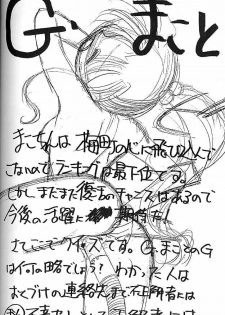 G. まこと
まこちゃんは 梅田の心に飛び込んで
こないのでランキングは最下位です。
しかしまだまだ復活のチャンスはあるので
今後の活躍に期待だ!
さてここでクイズです。G.まことのG
は何の略でしょう? わかった人は
おくづけの連絡先まで。正解者には